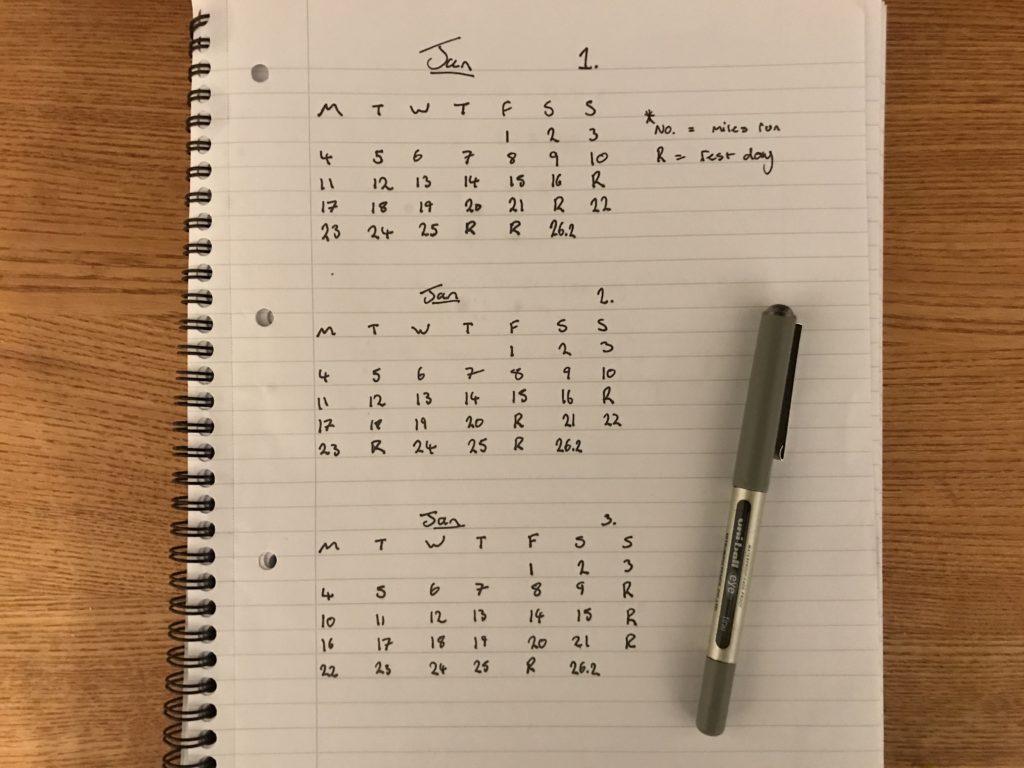 Jan 1.
M T W T F S S
1 2 3
4 5 6 7 8 9 10
11 12 13 14 15 16 R
17 18 19 20 21 R 22
23 24 25 R R 26.2
*No. = miles run
R = rest day
Jan 2.
M T W T F S S
1 2 3
4 5 6 7 8 9 10
11 12 13 14 15 16 R
17 18 19 20 R 21 22
23 R 24 25 R 26.2
Jan 3.
M T W T F S S
1 2 3
4 5 6 7 8 9 R
10 11 12 13 14 15 R
16 17 18 19 20 21 R
22 23 24 25 R 26.2
uniball eye